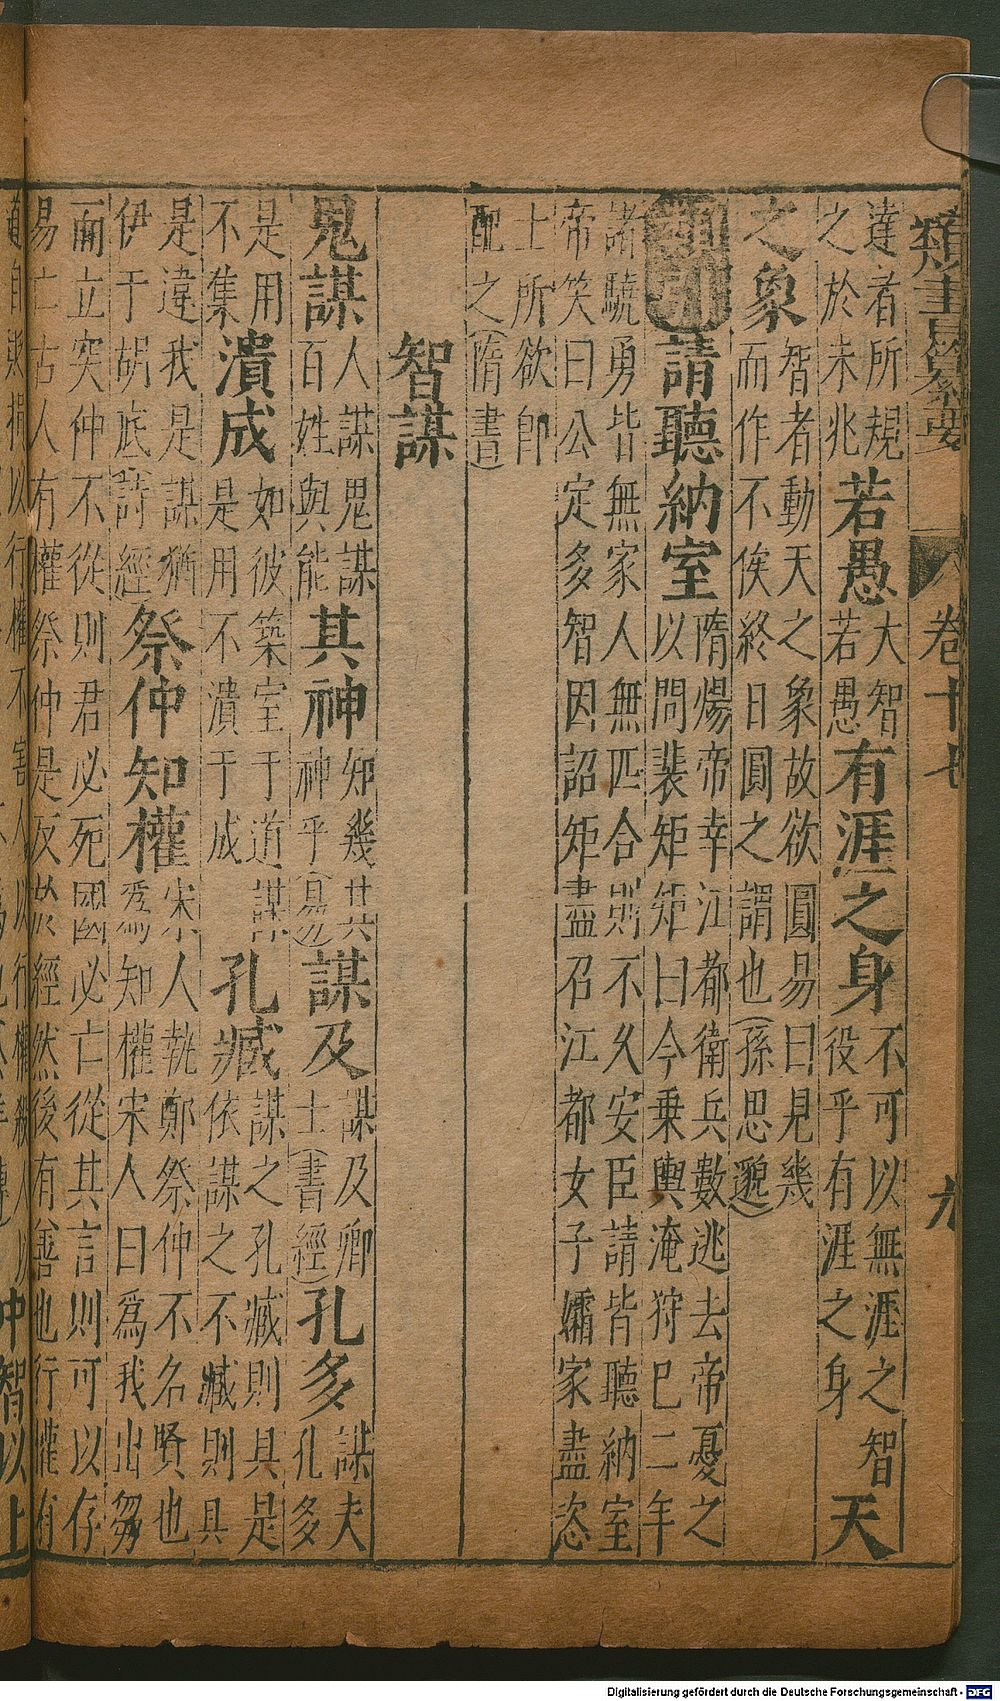 類書纂要 卷十七 九
達者所規之於未兆 若愚 大智若愚 有涯之身 不可以無涯之智役乎有涯之身 天
之象 智者動天之象故欲圓易曰見幾而作不俟終日圓之謂也(孫思邈)
請聽納室 隋煬帝幸江都衛兵數逃去帝憂之以問裴矩矩曰今乘輿淹狩巳二年
諸驍勇皆無家人無匹合則不久安臣請皆聽納室
帝笑曰公定多智因詔矩盡召江都女子孀家盡恣
士所欲即配之(隋書)
智謀
鬼謀 人謀鬼謀百姓與能 其神 知幾其神乎(易 謀及 謀及卿士(書經) 孔多 謀夫孔多
是用不集 潰成 如彼築室于道謀是用不潰于成 孔臧 謀之孔臧則具是依謀之不臧則具
是違我是謀猶伊于胡底(詩經) 祭仲知權 宋人執鄭祭仲不名賢也為知權宋人曰為我出芻
而立突仲不從則君必死國必亡從其言則可以存
易亡古人有權祭仲是反於經然後有善也行權有
道自 損以行權不害人以行權殺人以
仲智以上
Digitalisierung gefördert durch die Deutsche Forschungsgemeinschaft - DFG